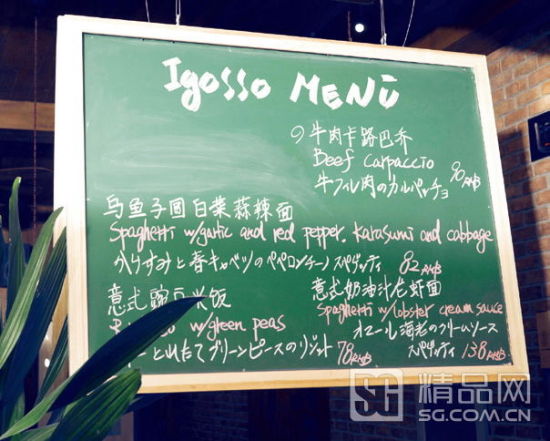 Igosso MENU
牛肉卡路巴乔
Beef Carpaccio
牛フィレ肉のカルパッチョ 90RMB
乌鱼子圆白菜蒜辣面
Spaghetti w/garlic and red pepper. Karasumi and cabbage
からすみと春キャベツのペペロンチーノスパゲッティ 82RMB
意式豌豆米饭
w/green peas
とれたてグリーンピースのリゾット 78RMB
意式奶油汁龙虾面
Spaghetti w/lobster cream sauce
オマール海老のクリームソース
スパゲッティ 138RMB
SG 精品网
SG.COM.CN